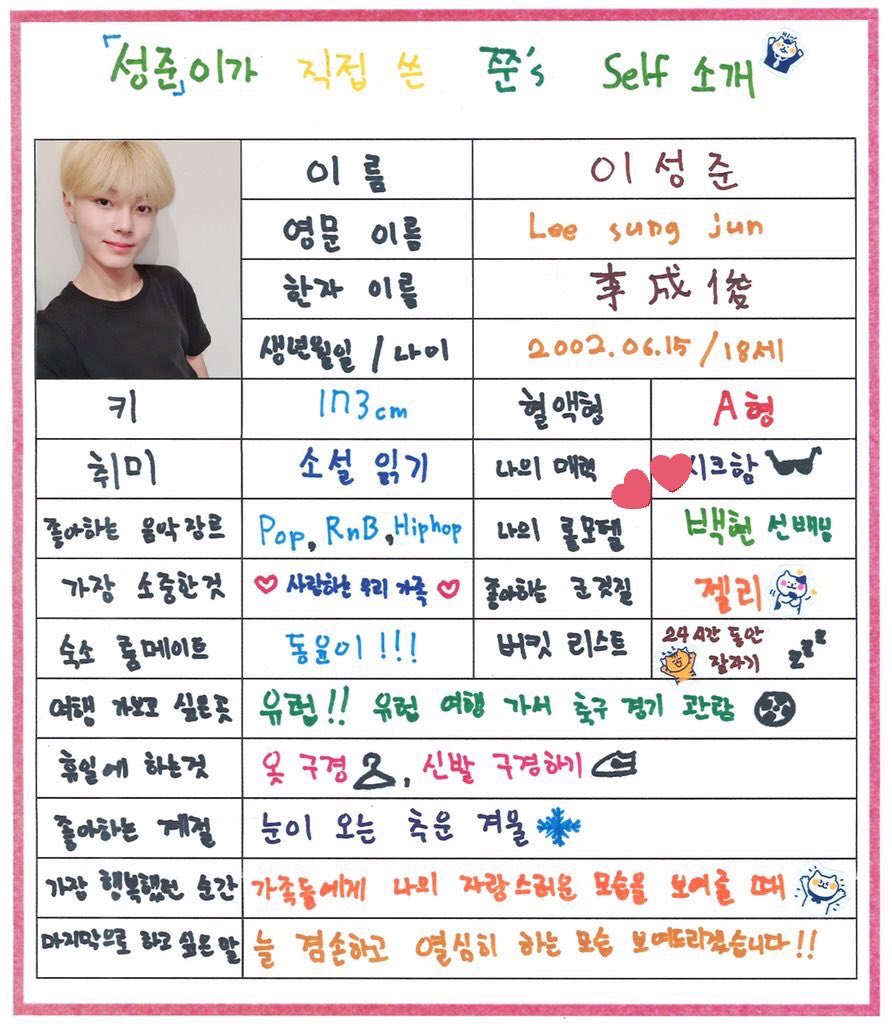 「성준」이가 직접 쓴 쭌's Self 소개
이름 이성준
영문 이름 Lee sung jun
한자 이름 李成俊
생년월일 / 나이 2002.06.15 / 18세
키 173cm 혈액형 A형
취미 소설 읽기 나의 매력 시크함
좋아하는 음악장르 Pop, RnB, Hiphop 나의 롤모델 백현 선배님
가장 소중한것 사랑하는 우리 가족 좋아하는 군것질 젤리
숙소 룸메이트 동윤이!!! 버킷 리스트 24시간 동안
잠자기 zzz
여행 가보고 싶은곳 유럽!! 유럽 여행 가서 축구 경기 관람
휴일에 하는것 옷 구경, 신발 구경하기
좋아하는 계절 눈이 오는 추운 겨울
가장 행복했던 순간 가족들에게 나의 자랑스러운 모습을 보여줄 때
마지막으로 하고 싶은 말 늘 겸손하고 열심히 하는 모습 보여드리겠습니다!!